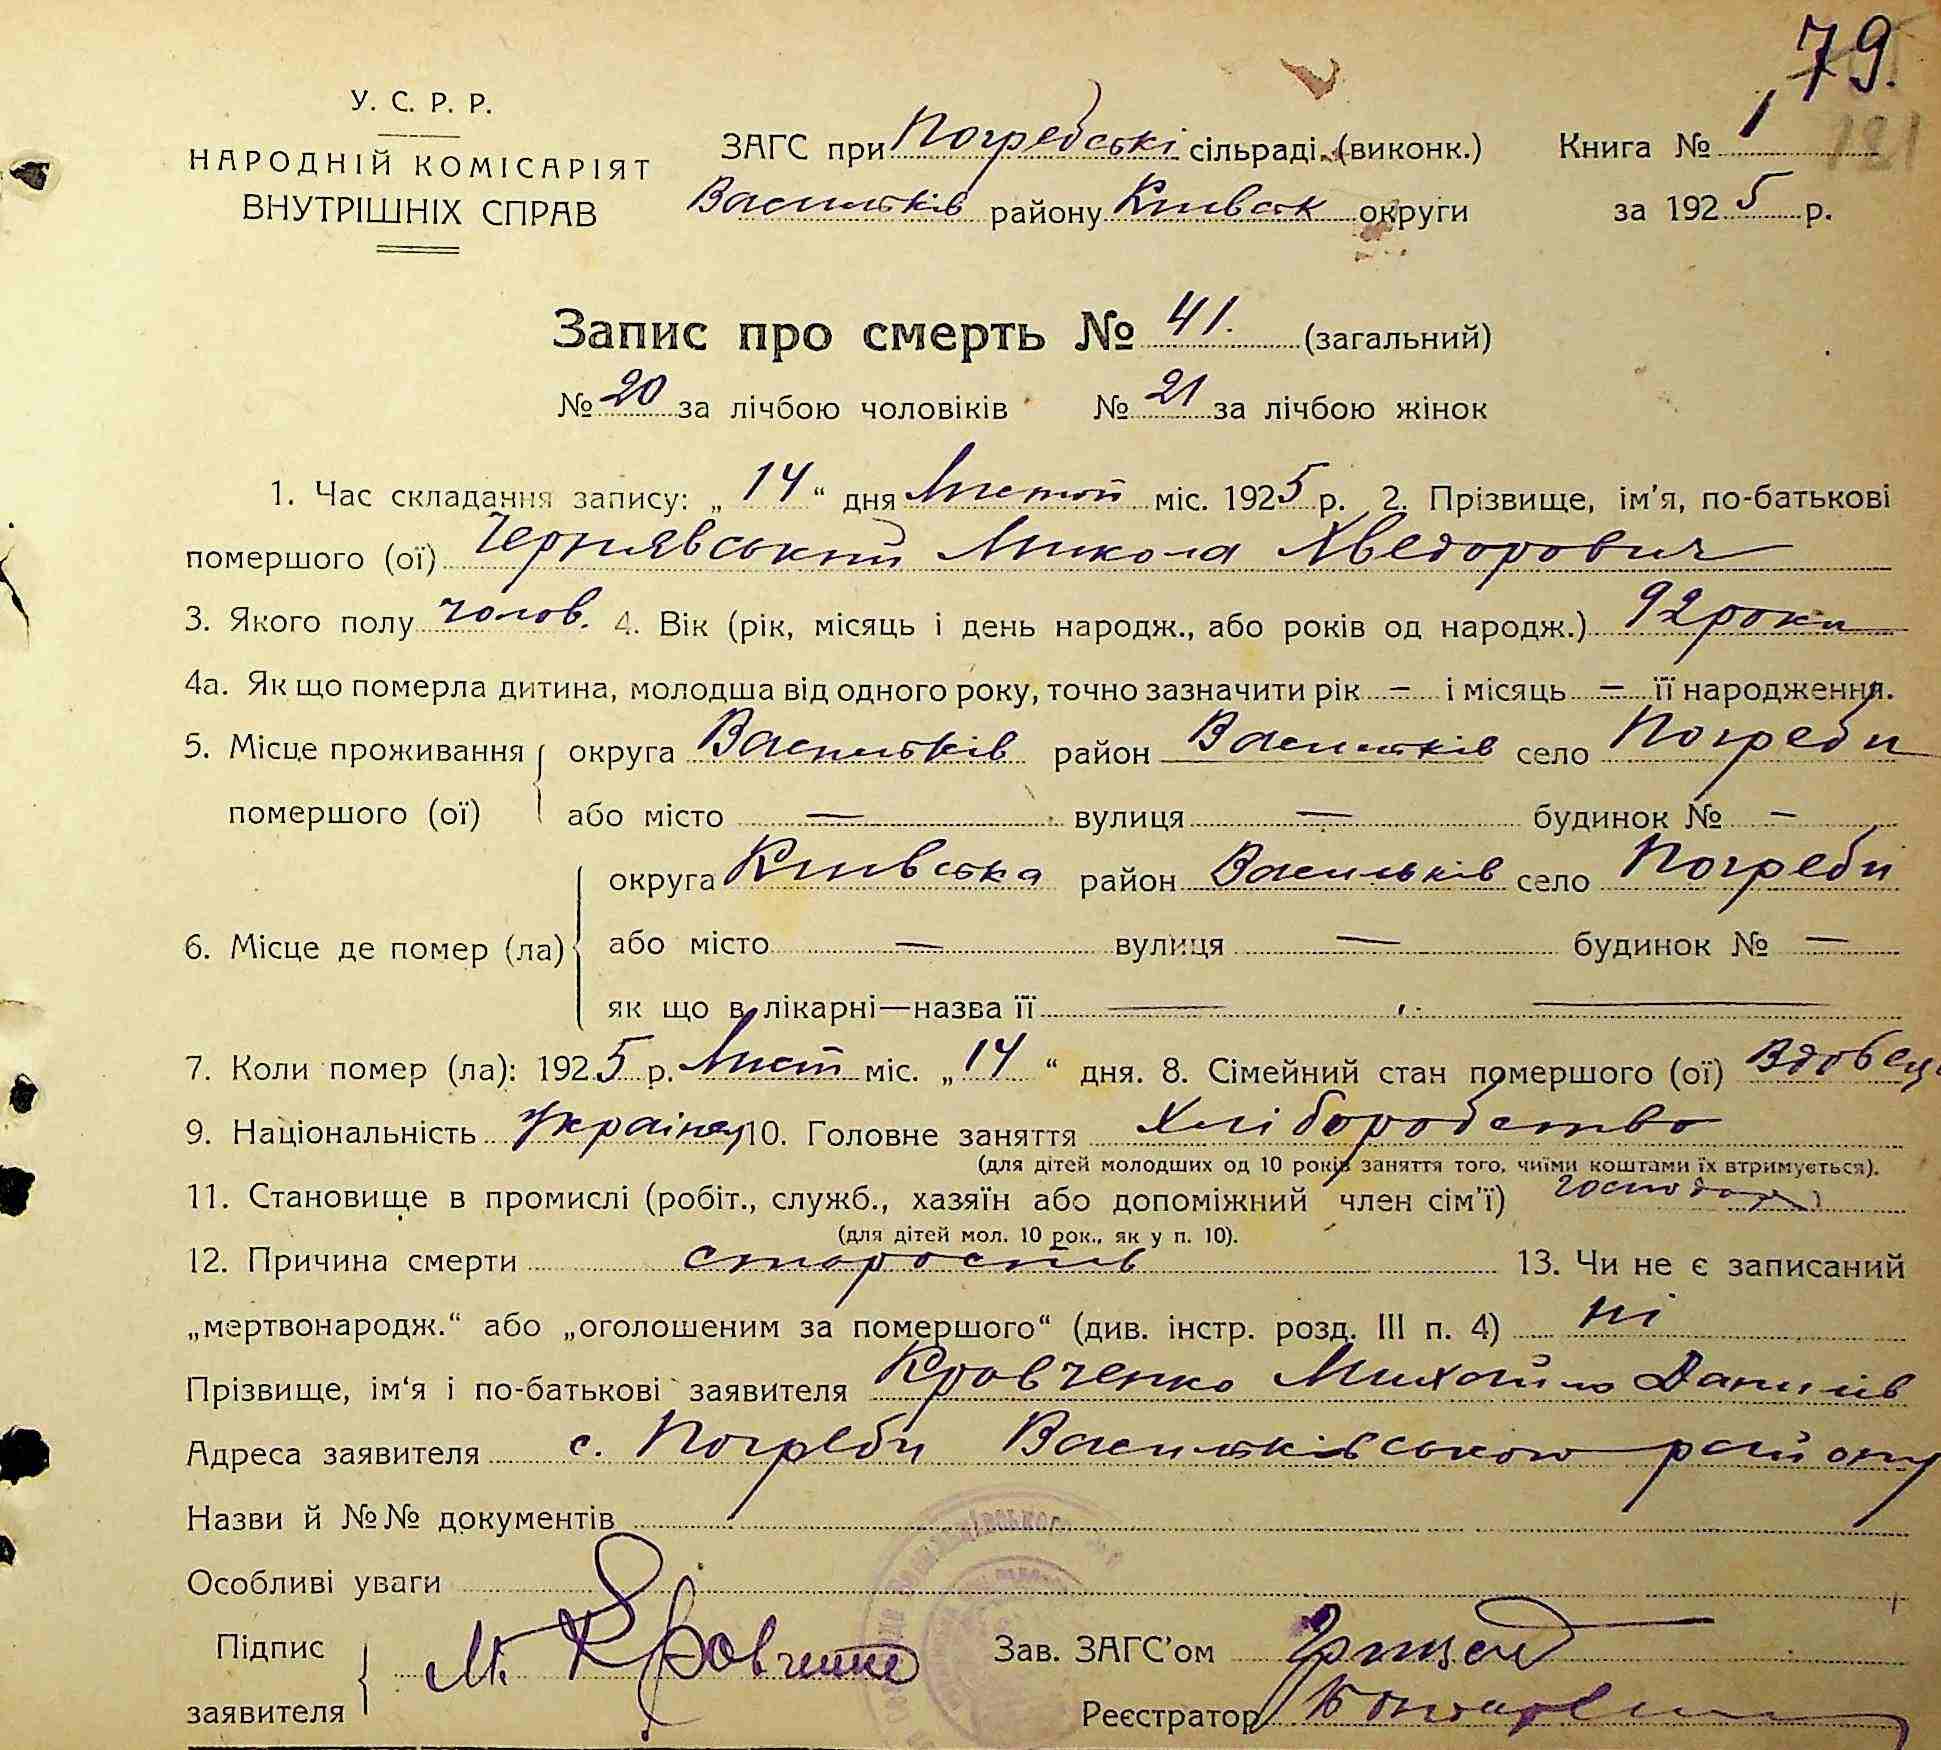 79.
121
У. С. Р. Р.
НАРОДНІЙ КОМІСАРІЯТ
ВНУТРІШНІХ СПРАВ
ЗАГС при Погребські сільраді (виконк.) Книга № 1
Васильків району Київськ округи за 1925 р.
Запис про смерть № 41. (загальний)
№ 20 за лічбою чоловіків № 21 за лічбою жінок
1. Час складання запису: „ 14 “ дня Лютой міс. 1925 р. 2. Прізвище, ім'я, по-батькові
помершого (ої) Чернявський Микола Хведорович
3. Якого полу чолов. 4. Вік (рік, місяць і день народж., або років од народж.) 92 роки
4а. Як що померла дитина, молодша від одного року, точно зазначити рік — і місяць — її народження.
5. Місце проживання округа Васильків район Васильків село Погреби
помершого (ої) або місто — вулиця — будинок № —
округа Київська район Васильків село Погреби
6. Місце де помер (ла) або місто — вулиця — будинок № —
як що в лікарні—назва її
7. Коли помер (ла): 1925 р. міс. „ 14 “ дня. 8. Сімейний стан помершого (ої) Вдовець
9. Національність Українец 10. Головне заняття Хліборобство
(для дітей молодших од 10 років заняття того, чиїми коштами їх втримується).
11. Становище в промислі (робіт., служб., хазяїн або допоміжний член сім'ї) господар
(для дітей мол. 10 рок., як у п. 10).
12. Причина смерти старостів 13. Чи не є записаний
„мертвонародж.“ або „оголошеним за помершого“ (див. інстр. розд. III п. 4) ні
Прізвище, ім'я і по-батькові заявителя Кравченко Михайло Данилів
Адреса заявителя с. Погреби Васильківського району
Назви й №№ документів
Особливі уваги
Підпис
заявителя М. Кравченко
Зав. ЗАГС'ом
Реєстратор